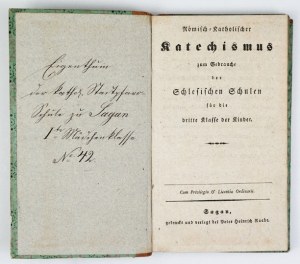 Eigenthum
der kathol. Stadtpfarr
Schule zu Sagan
1te Mädchenklasse
No. 42.
Römisch-Katholischer
Katechismus
zum Gebrauche
der
Schlesischen Schulen
für die
dritte Klasse der Kinder.
Cum Privilegio & Licentia Ordinarii.
Sagan,
gedruckt und verlegt bei Peter Heinrich Raabe.